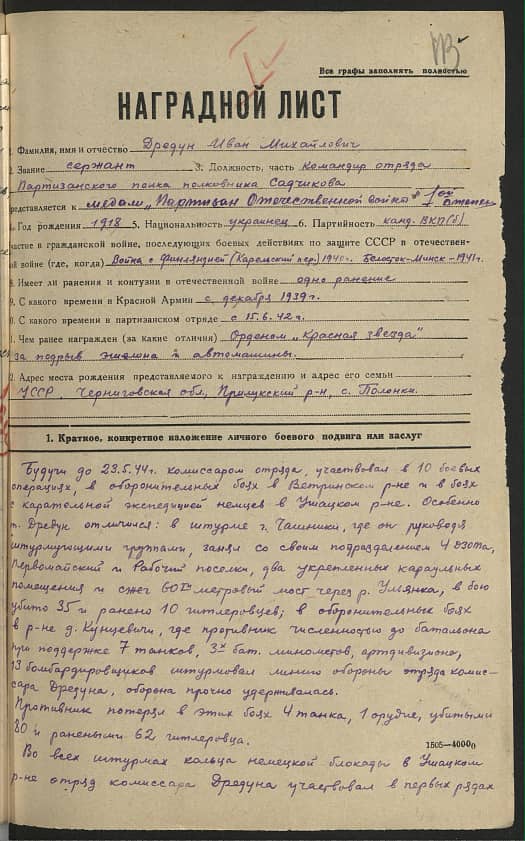 Все графы заполнять полностью
НАГРАДНОЙ ЛИСТ
1. Фамилия, имя и отчество Дредун Иван Михайлович
2. Звание сержант 3. Должность, часть Командир отряда
Партизанского полка полковника Садчикова
представляется к медали „Партизан Отечественной войны" 1ой степени
4. Год рождения 1918 5. Национальность украинец 6. Партийность канд. ВКП(б)
участие в гражданской войне, последующих боевых действиях по защите СССР в отечествен-
ной войне (где, когда) Война с Финляндией (Карельский пер.) 1940г. Белосток-Минск-1941г.
8. Имеет ли ранения и контузии в отечественной войне одно ранение
9. С какого времени в Красной Армии с декабря 1939г.
0. С какого времени в партизанском отряде с 15.6.42г.
1. Чем ранее награжден (за какие отличия) Орденом „Красная звезда"
за подрыв эшелона и автомашины.
2. Адрес места рождения представляемого к награждению и адрес его семьи
УССР, Черниговская обл., Прилукский р-н, с. Полонки.
1. Краткое, конкретное изложение личного боевого подвига или заслуг
Будучи до 23.5.44г. комиссаром отряда, участвовал в 10 боевых
операциях, в оборонительных боях в Ветринском р-не и в боях
с карательной экспедицией немцев в Ушацком р-не. Особенно
т. Дредун отличился: в штурме г. Чашники, где он руководя
штурмующими группами, занял со своим подразделением 4 дзота,
Первомайский и Рабочий поселки, два укрепленных караульных
помещения и сжег 60ти метровый мост через р. Ульянка, в бою
убито 35 и ранено 10 гитлеровцев; в оборонительных боях
в р-не д. Кунцевичи, где противник численностью до батальона
при поддержке 7 танков, 3х бат. минометов, артдивизиона,
13 бомбардировщиков штурмовал линию обороны отряда комис-
сара Дредуна, оборона прочно удержалась.
Противник потерял в этих боях 4 танка, 1 орудие, убитыми
30 и ранеными 62 гитлеровца.
1505—40000
Во всех штурмах кольца немецкой блокады в Ушацком
р-не отряд комиссара Дредуна участвовал в первых рядах